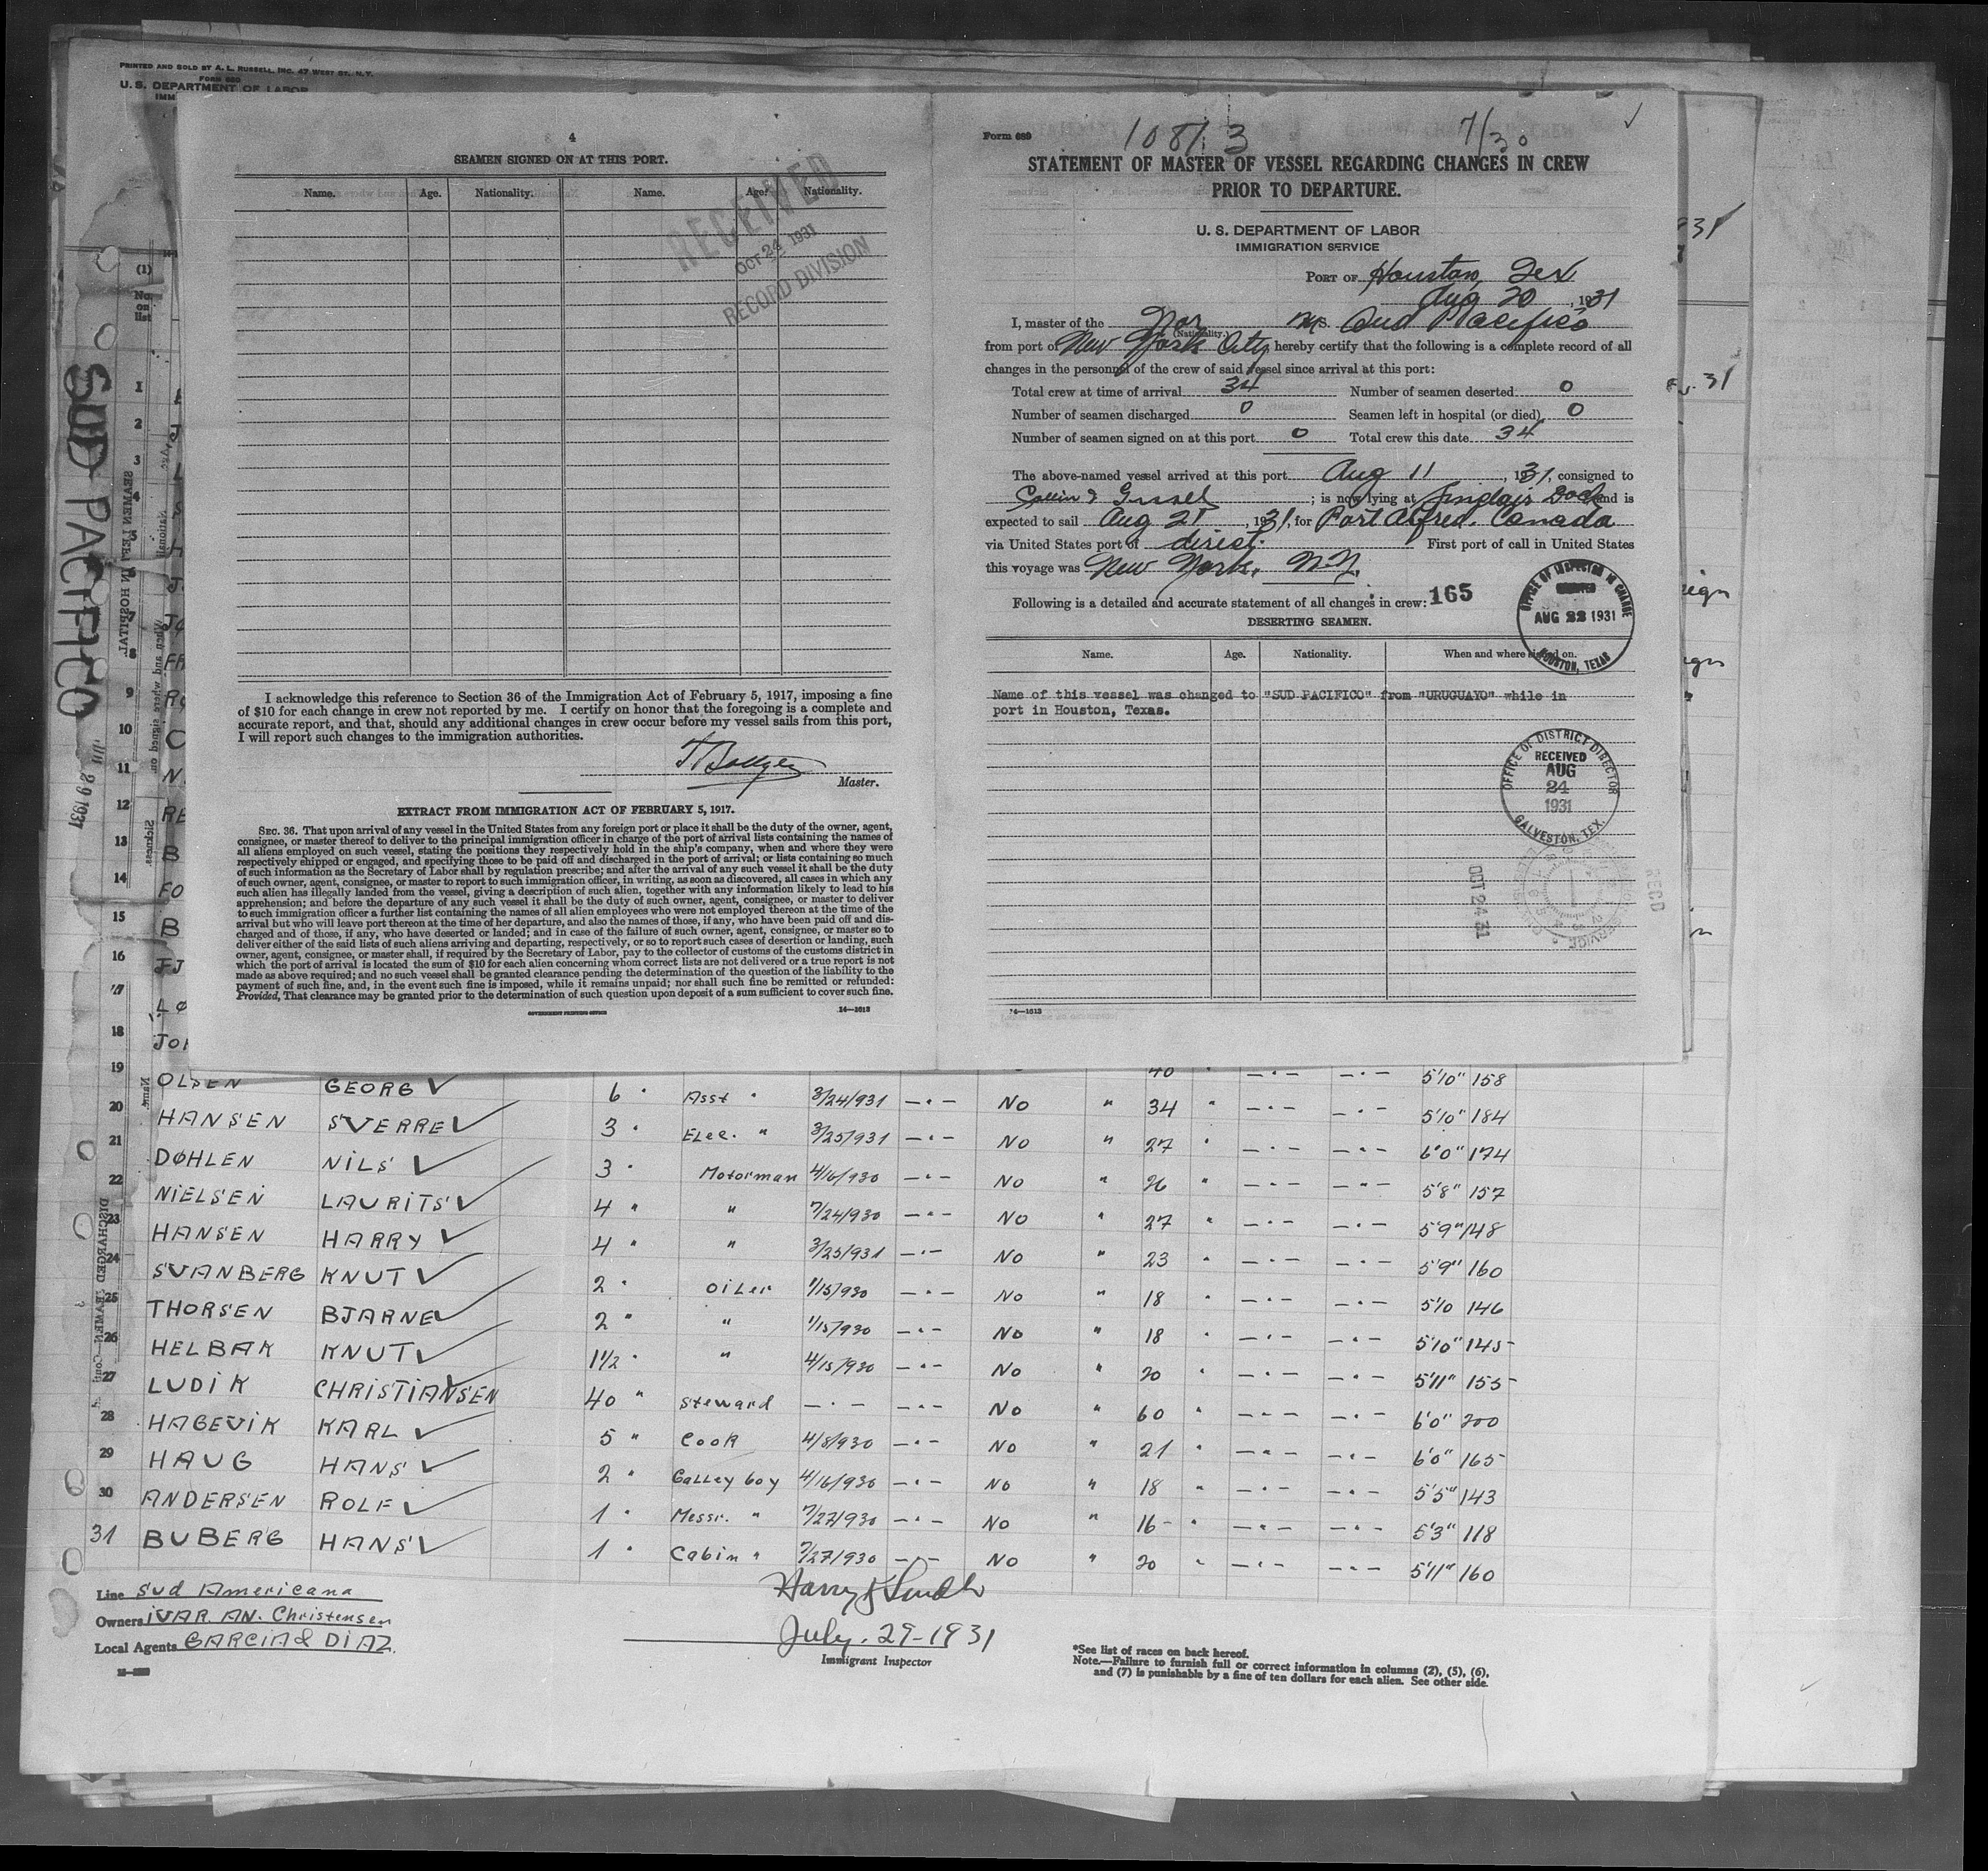 PRINTED AND SOLD BY A. L. RUSSELL, INC. 47 WEST ST. N.Y.
FORM 680
U. S. DEPARTMENT OF LABOR
IMM
SUD PACIFICO
4
SEAMEN SIGNED ON AT THIS PORT.
Name. Age. Nationality. Name. Age. Nationality.
RECEIVED
OCT 24 1931
RECORD DIVISION
I acknowledge this reference to Section 36 of the Immigration Act of February 5, 1917, imposing a fine
of $10 for each change in crew not reported by me. I certify on honor that the foregoing is a complete and
accurate report, and that, should any additional changes in crew occur before my vessel sails from this port,
I will report such changes to the immigration authorities.
Master.
EXTRACT FROM IMMIGRATION ACT OF FEBRUARY 5, 1917.
SEC. 36. That upon arrival of any vessel in the United States from any foreign port or place it shall be the duty of the owner, agent,
consignee, or master thereof to deliver to the principal immigration officer in charge of the port of arrival lists containing the names of
all aliens employed on such vessel, stating the positions they respectively hold in the ship's company, when and where they were
respectively shipped or engaged, and specifying those to be paid off and discharged in the port of arrival; or lists containing so much
of such information as the Secretary of Labor shall by regulation prescribe; and after the arrival of any such vessel it shall be the duty
of such owner, agent, consignee, or master to report to such immigration officer, in writing, as soon as discovered, all cases in which any
such alien has illegally landed from the vessel, giving a description of such alien, together with any information likely to lead to his
apprehension; and before the departure of any such vessel it shall be the duty of such owner, agent, consignee, or master to deliver
to such immigration officer a further list containing the names of all alien employees who were not employed thereon at the time of the
arrival but who will leave port thereon at the time of her departure, and also the names of those, if any, who have been paid off and dis-
charged and of those, if any, who have deserted or landed; and in case of the failure of such owner, agent, consignee, or master so to
deliver either of the said lists of such aliens arriving and departing, respectively, or so to report such cases of desertion or landing, such
owner, agent, consignee, or master shall, if required by the Secretary of Labor, pay to the collector of customs of the customs district in
which the port of arrival is located the sum of $10 for each alien concerning whom correct lists are not delivered or a true report is not
made as above required; and no such vessel shall be granted clearance pending the determination of the question of the liability to the
payment of such fine, and, in the event such fine is imposed, while it remains unpaid; nor shall such fine be remitted or refunded:
Provided, That clearance may be granted prior to the determination of such question upon deposit of a sum sufficient to cover such fine.
GOVERNMENT PRINTING OFFICE 14—1613
Form 689 10813 7/30
STATEMENT OF MASTER OF VESSEL REGARDING CHANGES IN CREW
PRIOR TO DEPARTURE.
U. S. DEPARTMENT OF LABOR
IMMIGRATION SERVICE
PORT OF Houston, Tex
Aug 20, 1931
I, master of the Nor M.S. Sud Pacifico
(Nationality.)
from port of New York City, hereby certify that the following is a complete record of all
changes in the personnel of the crew of said vessel since arrival at this port:
Total crew at time of arrival 34 Number of seamen deserted 0
Number of seamen discharged 0 Seamen left in hospital (or died) 0
Number of seamen signed on at this port 0 Total crew this date 34
The above-named vessel arrived at this port Aug 11, 1931, consigned to
; is now lying at Sinclair Dock and is
expected to sail Aug 21, 1931, for Port Alfred. Canada
via United States port of direct. First port of call in United States
this voyage was New York, N.Y.
Following is a detailed and accurate statement of all changes in crew: 165
DESERTING SEAMEN.
OFFICE OF INSPECTOR IN CHARGE
AUG 22 1931
HOUSTON, TEXAS
Name. Age. Nationality. When and where signed on.
Name of this vessel was changed to "SUD PACIFICO" from "URUGUAYO" while in
port in Houston, Texas.
OFFICE OF DISTRICT DIRECTOR
RECEIVED
AUG
24
1931
GALVESTON, TEX.
OCT 24 31
RECD
14—1613
19 OLSEN GEORG 6 " Asst " 3/24/931 No " 40 " 5'10" 158
20 HANSEN SVERRE 3 " Elec. " 3/25/931 No " 34 " 5'10" 184
21 DØHLEN NILS 3 " Motorman 4/16/930 No " 27 " 6'0" 174
22 NIELSEN LAURITS 4 " " 7/24/930 No " 26 " 5'8" 157
23 HANSEN HARRY 4 " " 3/25/931 No " 27 " 5'9" 148
24 SVANBERG KNUT 2 " Oiler 1/15/930 No " 23 " 5'9" 160
25 THORSEN BJARNE 2 " " 1/15/930 No " 18 " 5'10 146
26 HELBAK KNUT 1 1/2 " " 4/15/930 No " 18 " 5'10" 145
27 LUDIK CHRISTIANSEN 40 " Steward No " 20 " 5'11" 155
28 HAGEVIK KARL 5 " Cook 4/8/930 No " 60 " 6'0" 200
29 HAUG HANS 2 " Galley boy 4/16/930 No " 21 " 6'0" 165
30 ANDERSEN ROLF 1 " Messr. " 7/27/930 No " 18 " 5'5" 143
31 BUBERG HANS 1 " Cabin " 7/27/930 No " 16 " 5'3" 118
20 " 5'11" 160
Line Sud Americana
Owners IVAR. AN. Christensen
Local Agents GARCIA & DIAZ.
July. 29-1931
Immigrant Inspector
*See list of races on back hereof.
Note.—Failure to furnish full or correct information in columns (2), (5), (6),
and (7) is punishable by a fine of ten dollars for each alien. See other side.